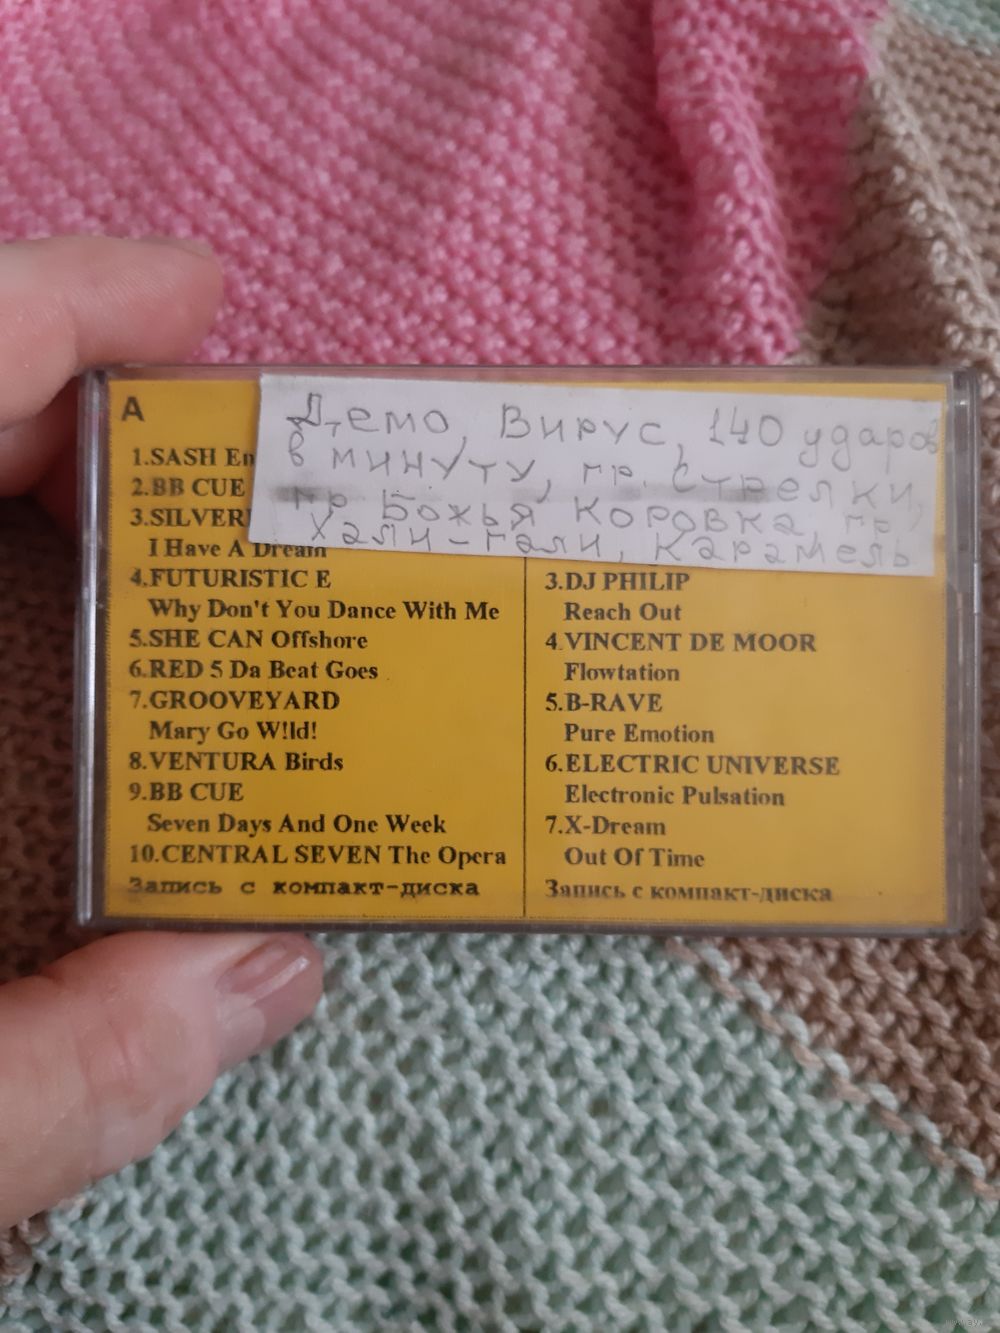 A
Демо, Вирус, 140 ударов
в минуту, гр. Стрелки,
гр Божья Коровка, гр,
Хали-гали, Карамель
1.SASH En
2.BB CUE
3.SILVER
I Have A Dream
4.FUTURISTIC E
Why Don't You Dance With Me
5.SHE CAN Offshore
6.RED 5 Da Beat Goes
7.GROOVEYARD
Mary Go W!ld!
8.VENTURA Birds
9.BB CUE
Seven Days And One Week
10.CENTRAL SEVEN The Opera
Запись с компакт-диска
3.DJ PHILIP
Reach Out
4.VINCENT DE MOOR
Flowtation
5.B-RAVE
Pure Emotion
6.ELECTRIC UNIVERSE
Electronic Pulsation
7.X-Dream
Out Of Time
Запись с компакт-диска